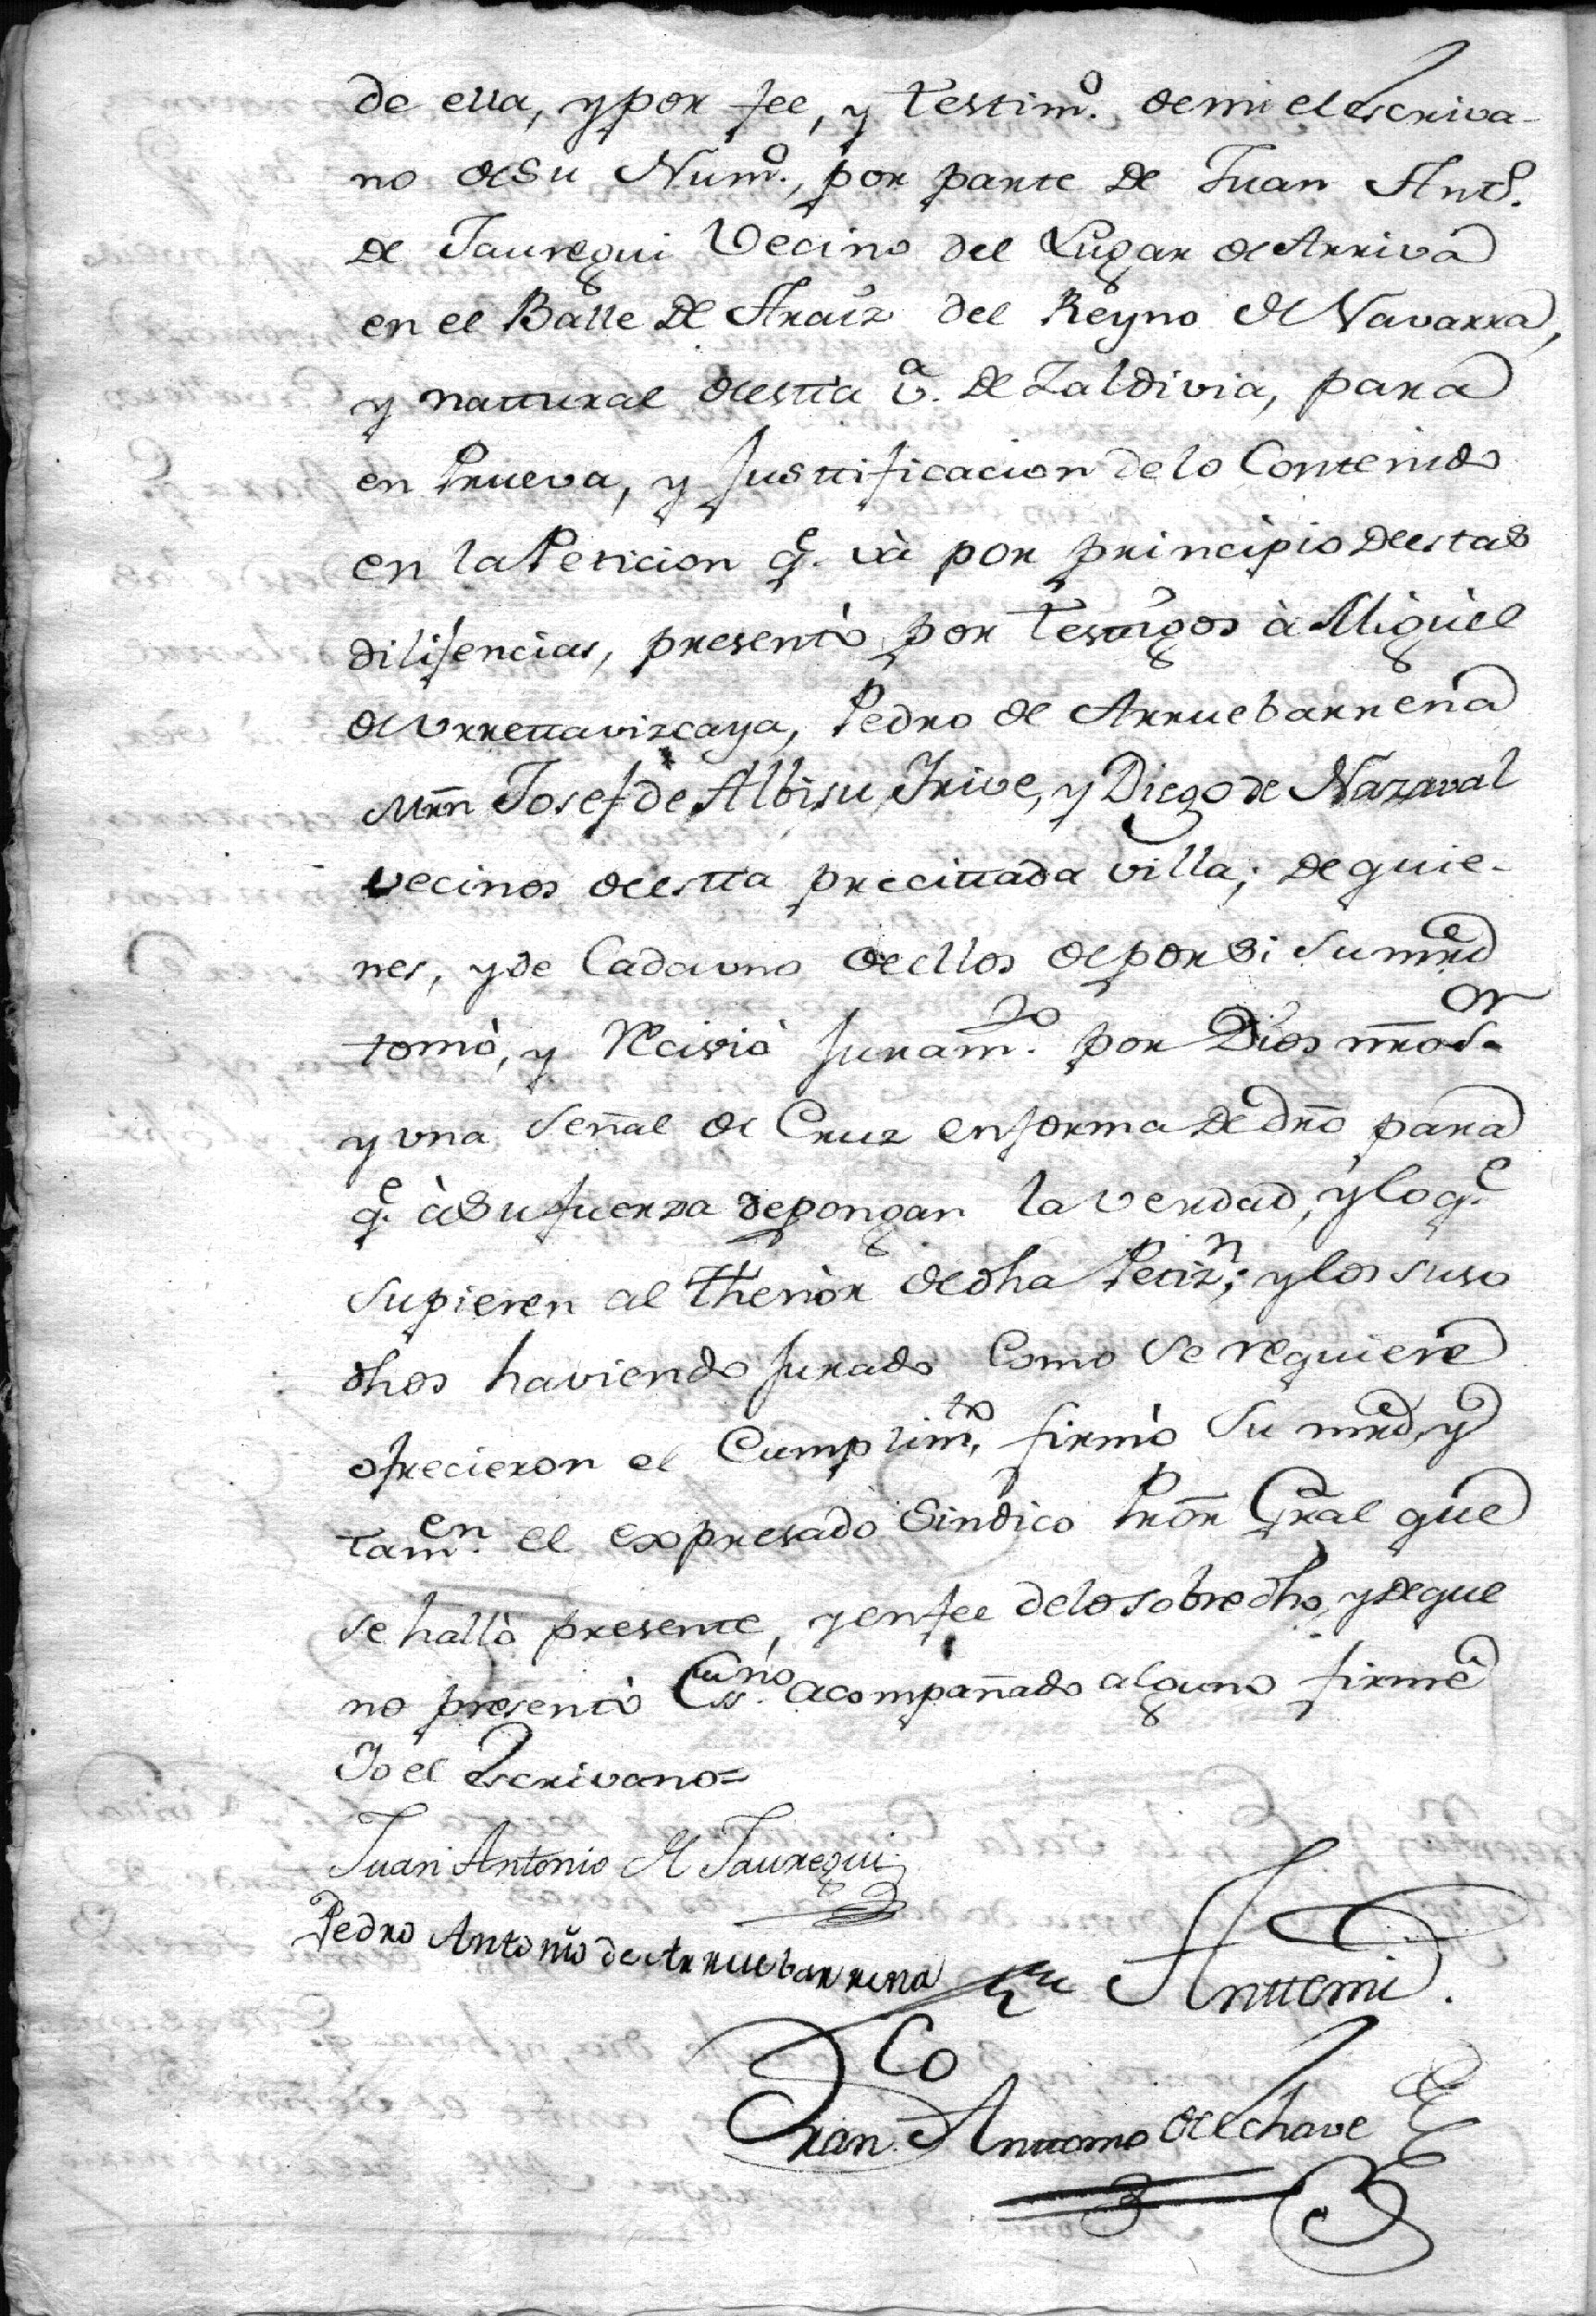 de ella, y por fee, y testimº. de mi el Escriva-
no de su Numº., por parte de Juan Antº.
de Jauregui Vecino del Lugar de Arriva
en el Balle de Araiz del Reyno de Navarra,
y nattural de estta vª. de Zaldivia, para
en Prueva, y Justtificacion de lo Contenido
en la Peticion qe. và por principio de estas
dilijencias, presentò por testtigos à Miguel
de Vrrettavizcaya, Pedro de Arruebarrena
Mrn Josef de Albisu Jrive, y Diego de Nazaval
vecinos de estta precittada villa; de quie-
nes, y de Cada uno de ellos de por si su mrd
tomò, y recivió juramto. por Dios nro Sor.
y vna señal de Cruz en forma de dro para
qe. à su fuerza depongan la verdad, y lo qe.
supieren al tthenor de dha Petizn; y los suso
dhos haviendo jurado Como se requiere
ofrecieron el Cumplimto, firmò su mrd, y
tamen. el expresado Sindico Pror Gral que
se hallò presente, y en fee de lo sobre dho, y de que
no presentò Essno. acompañado alguno firmé
Yo el Escrivano=
Juan Antonio de Jauregui
Pedro Antonio de Arruebarrena
Anttemi.
Franco Anttonio de Echave